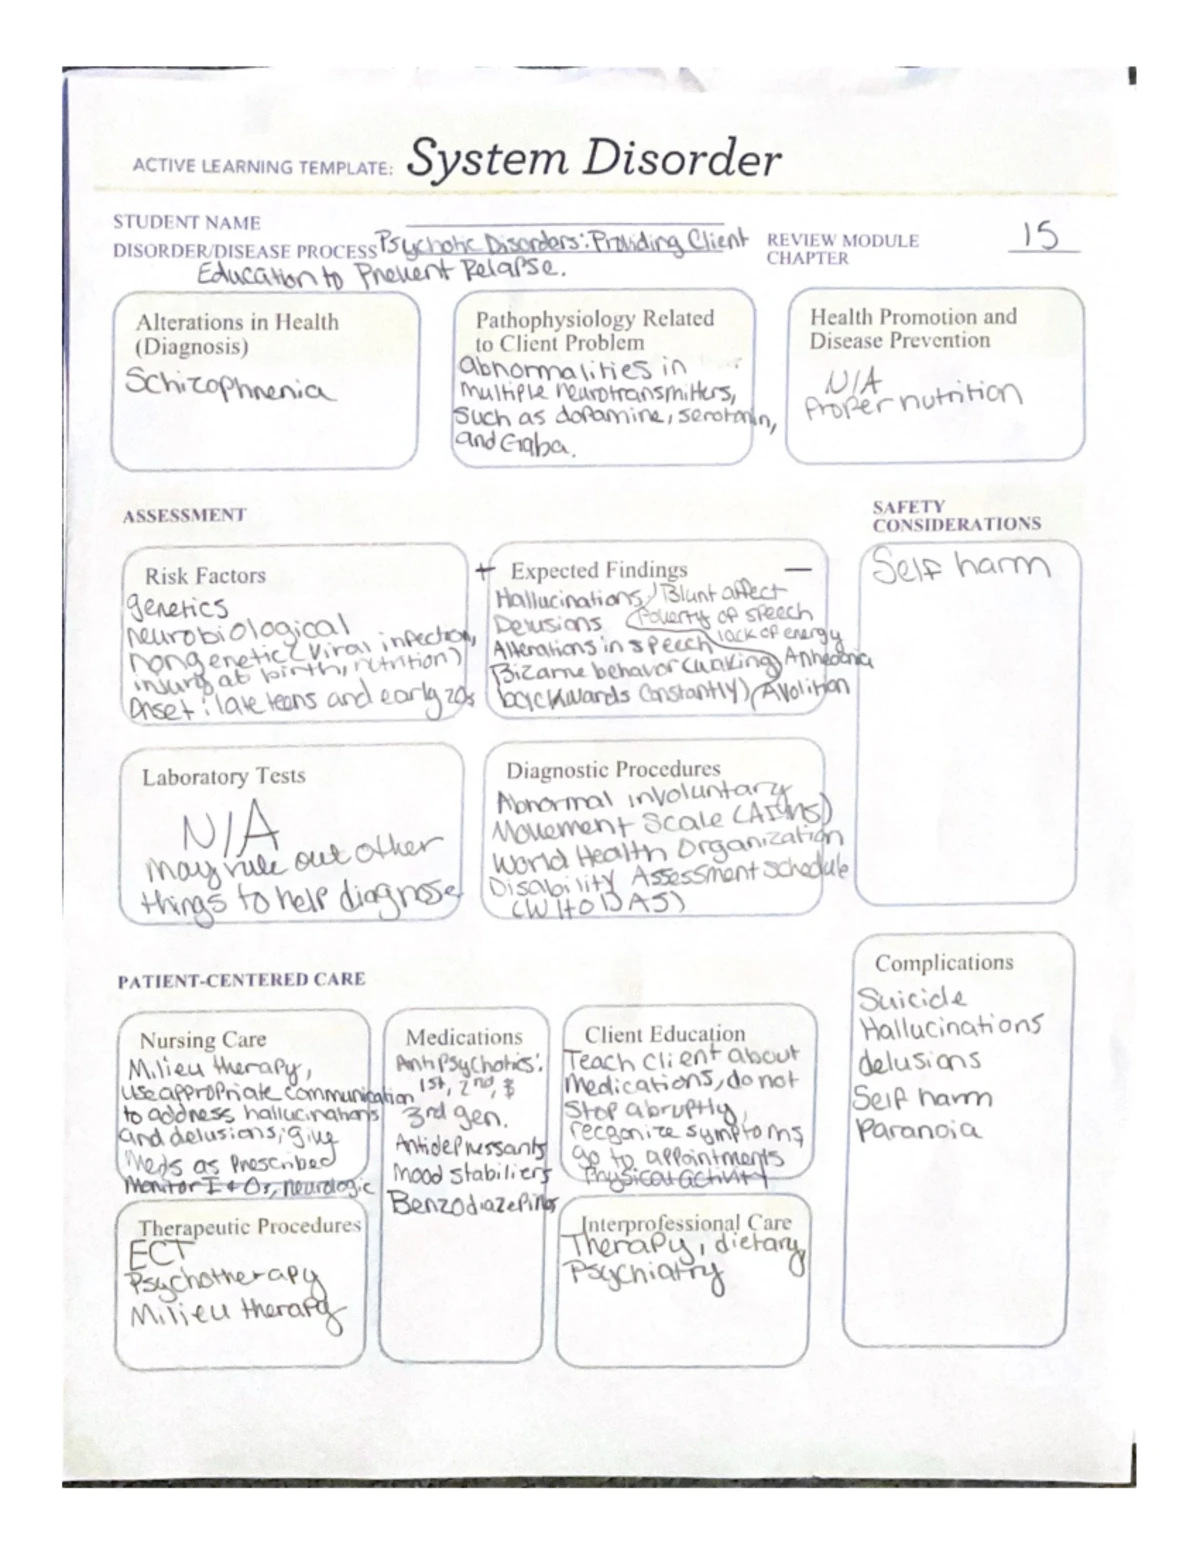 ACTIVE LEARNING TEMPLATE: System Disorder
STUDENT NAME
DISORDER/DISEASE PROCESS Psychotic Disorders: Providing Client
Education to Prevent Relapse.
REVIEW MODULE
CHAPTER
15
Alterations in Health
(Diagnosis)
Schizophrenia
Pathophysiology Related
to Client Problem
Abnormalities in
multiple neurotransmitters,
such as dopamine, serotonin,
and Gaba.
Health Promotion and
Disease Prevention
N/A
Proper nutrition
ASSESSMENT
SAFETY
CONSIDERATIONS
Self harm
Risk Factors
genetics
neurobiological
nongenetic (viral infection,
injury at birth, nutrition)
Onset: late teens and early 20s
+ Expected Findings —
Hallucinations / Blunt affect
Delusions Poverty of speech
Alterations in speech lack of energy
Bizarre behavior (walking Anhedonia
backwards constantly) Avolition
Laboratory Tests
N/A
may rule out other
things to help diagnose
Diagnostic Procedures
Abnormal involuntary
Movement Scale (AIMS)
World Health Organization
Disability Assessment schedule
(WHODAS)
PATIENT-CENTERED CARE
Complications
Suicide
Hallucinations
delusions
Self harm
Paranoia
Nursing Care
Milieu therapy,
use appropriate communication
to address hallucinations
and delusions, give
Meds as Prescribed
Monitor I & Os, neurologic
Medications
Antipsychotics:
1st, 2nd, &
3rd gen.
Antidepressants
Mood stabiliers
Benzodiazepines
Client Education
Teach client about
Medications, do not
Stop abruptly,
recgonize symptoms,
go to appointments
Physical activity
Therapeutic Procedures
ECT
Psychotherapy
Milieu therapy
Interprofessional Care
Therapy, dietary,
Psychiatry